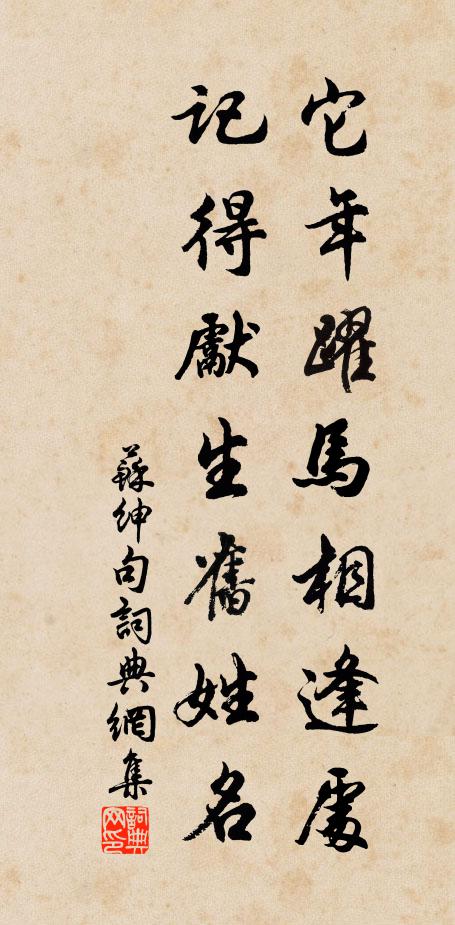 它年躍馬相逢處
記得獻生舊姓名
蘇紳句詞典網集
詞典网印